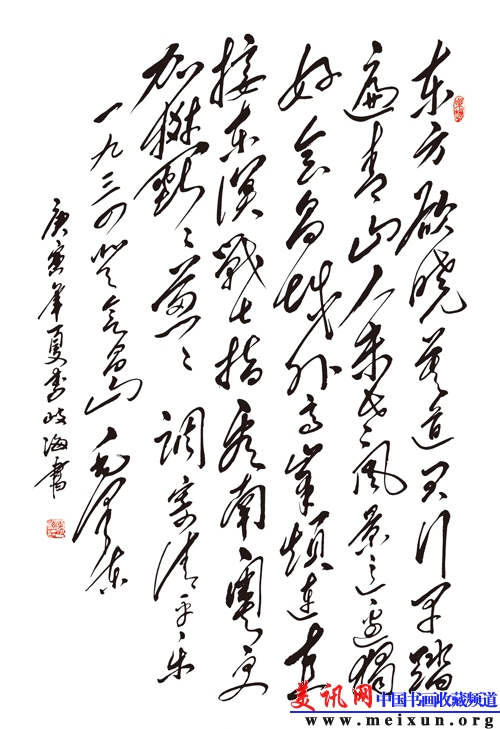 东方欲晓莫道君行早踏
遍青山人未老风景这边獨
好会昌城外高峯颠连直
接东溟戰士指看南粤更
加郁々葱々 调寄清平乐
一九三四登会昌山 毛泽东
庚寅年夏李岐海書
美讯网 中国书画收藏频道
www.meixun.org